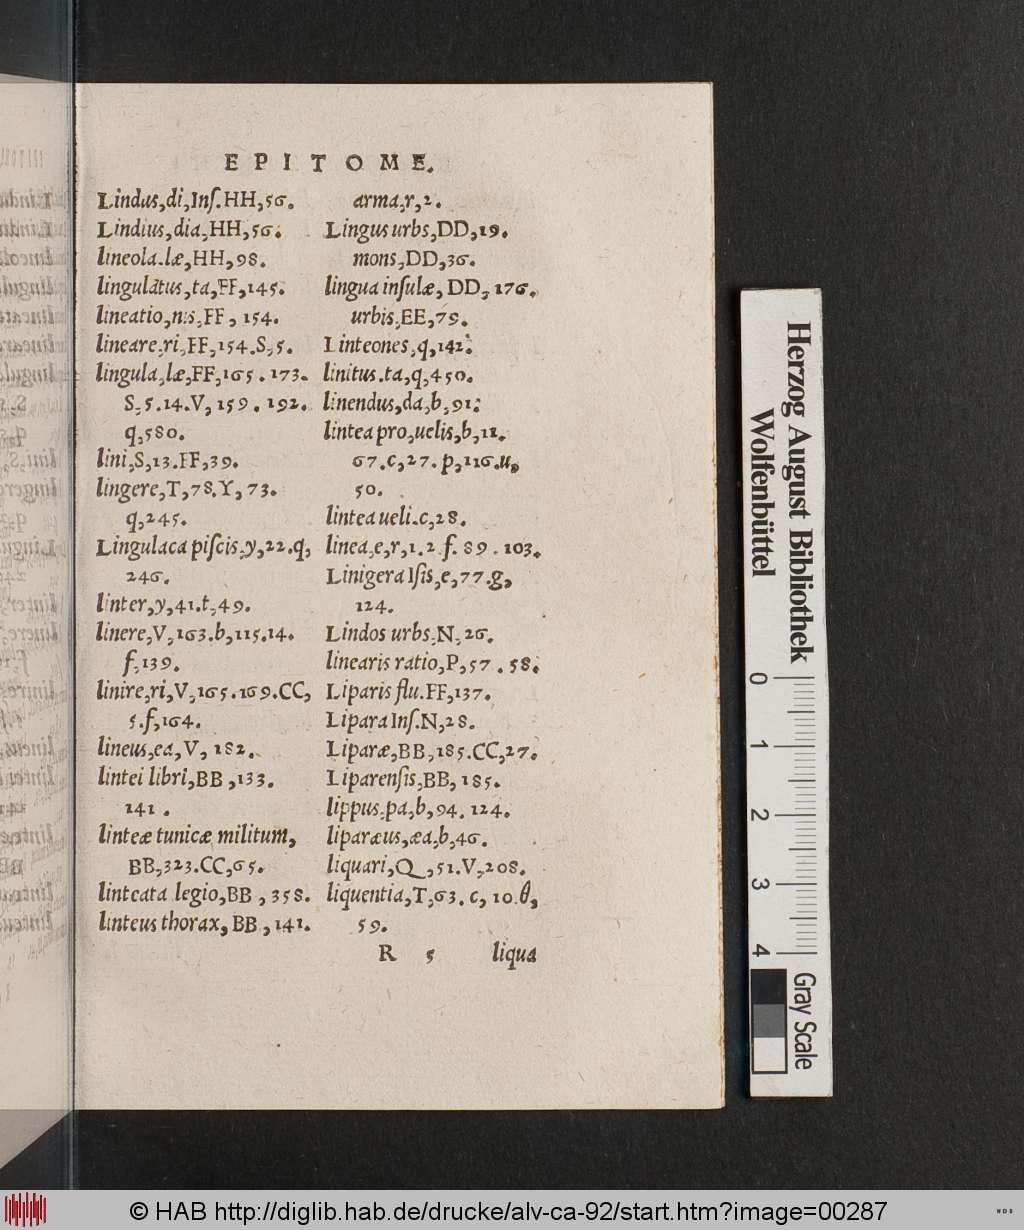 EPITOME.
Lindus,di,Inſ.HH,56.
Lindius,dia,HH,56.
lineola.læ,HH,98.
lingulatus,ta,FF,145.
lineatio,nis,FF, 154.
lineare,ri,FF,154.S,5.
lingula,læ,FF,165.173.
S,5.14.V,159.192.
q,580.
lini,S,13.FF,39.
lingere,T,78.Y,73.
q,245.
Lingulaca piſcis,y,22.q,
246.
linter,y,41.t,49.
linere,V,163.b,115.14.
f,139.
linire,ri,V,165.169.CC,
5.f,164.
lineus,ea,V, 182.
lintei libri,BB,133.
141.
linteæ tunicæ militum,
BB,323.CC,65.
linteata legio,BB, 358.
linteus thorax, BB, 141.
arma,r,2.
Lingus urbs,DD,19.
mons,DD,36.
lingua inſulæ, DD, 176.
urbis,EE,79.
Linteones,q,142.
linitus.ta,q,450.
linendus,da,b,91.
lintea pro,uelis,b,11.
67.c,27.p,116.u,
50.
lintea ueli.c,28.
linea,e,r,1.2.f.89.103.
Linigera Iſis,e,77.g,
124.
Lindos urbs,N,26.
linearis ratio,P,57.58.
Liparis flu.FF,137.
Lipara Inſ.N,28.
Liparæ,BB,185.CC,27.
Liparenſis,BB,185.
lippus,pa,b,94.124.
liparæus,æa,b,46.
liquari,Q,51.V,208.
liquentia,T,63.c,10.θ,
59.
R 5 liqua
Herzog August Bibliothek
Wolfenbüttel
0 1 2 3 4
Gray Scale
© HAB http://diglib.hab.de/drucke/alv-ca-92/start.htm?image=00287
WDB